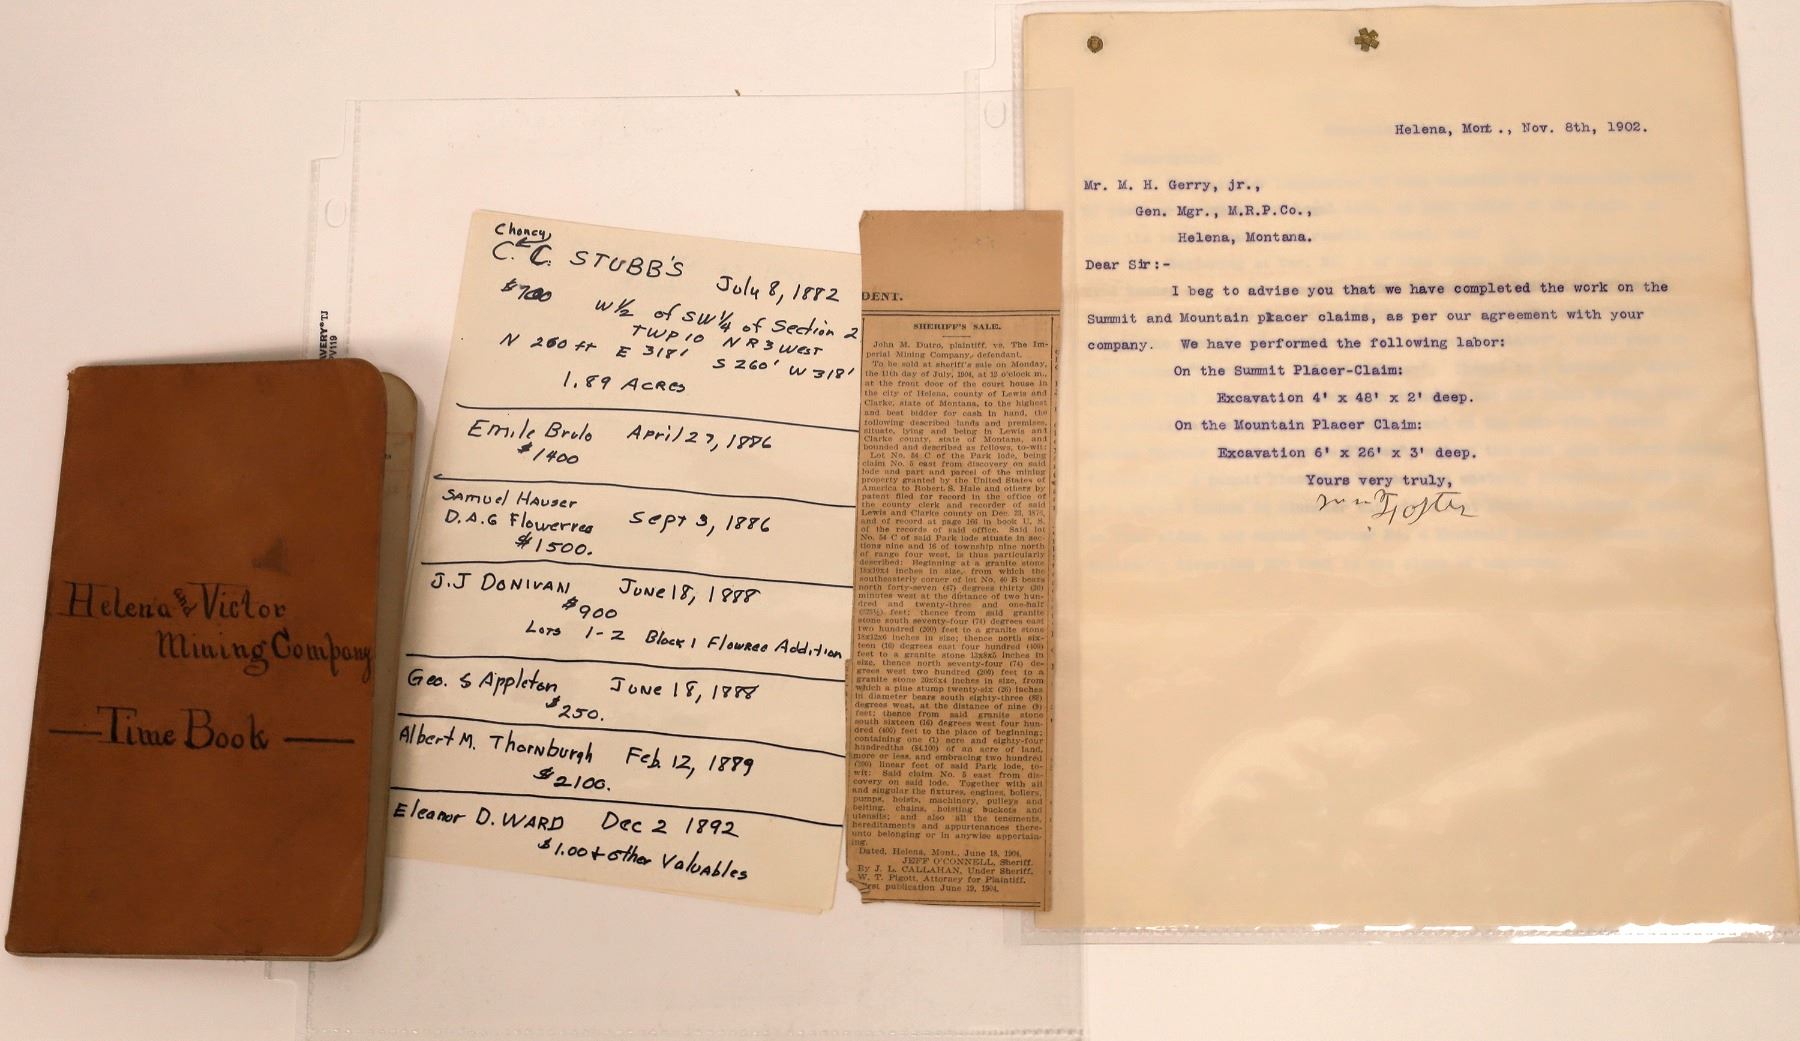 Helena and Victor
Mining Company
Time Book
AVERY® TJ
PV119
Choncy
C. C. STUBB'S
July 8, 1882
$700
W 1/2 of SW 1/4 of Section 2
TWP 10 N R 3 West
N 260 ft E 318' S 260' W 318'
1.89 Acres
Emile Brulo April 27, 1886
$1400
Samuel Hauser
D.A.G Flowerree Sept 3, 1886
$1500.
J.J DONIVAN June 18, 1888
$900
Lots 1-2 Block 1 Flowree Addition
Geo. S Appleton June 18, 1888
$250.
Albert M. Thornburgh Feb. 12, 1889
$2100.
Eleanor D. WARD Dec 2 1892
$1.00 + other Valuables
DENT.
SHERIFF'S SALE.
John M. Dutro, plaintiff, vs. The Im-
perial Mining Company, defendant.
To be sold at sheriff's sale on Monday,
the 11th day of July, 1904, at 12 o'clock m.,
at the front door of the court house in
the city of Helena, county of Lewis and
Clarke, state of Montana, to the highest
and best bidder for cash in hand, the
following described lands and premises,
situate, lying and being in Lewis and
Clarke county, state of Montana, and
bounded and described as follows, to-wit:
Lot No. 54 C of the Park lode, being
claim No. 5 east from discovery on said
lode and part and parcel of the mining
property granted by the United States of
America to Robert S. Hale and others by
patent filed for record in the office of
the county clerk and recorder of said
Lewis and Clarke county on Dec. 23,
and of record at page 166 in book U. S.
of the records of said office. Said lot
No. 54 C of said Park lode situate in sec-
tions nine and 16 of township nine north
of range four west, is thus particularly
described: Beginning at a granite stone
18x10x4 inches in size, from which the
southeasterly corner of lot No. 40 B bears
north forty-seven (47) degrees thirty (30)
minutes west at the distance of two hun-
dred and twenty-three and one-half
(223½) feet; thence from said granite
stone south seventy-four (74) degrees east
two hundred (200) feet to a granite stone
18x12x6 inches in size; thence north six-
teen (16) degrees east four hundred (400)
feet to a granite stone 13x8x5 inches in
size, thence north seventy-four (74) de-
grees west two hundred (200) feet to a
granite stone 20x6x4 inches in size, from
which a pine stump twenty-six (26) inches
in diameter bears south eighty-three (83)
degrees west, at the distance of nine (9)
feet; thence from said granite stone
south sixteen (16) degrees west four hun-
dred (400) feet to the place of beginning;
containing one (1) acre and eighty-four
hundredths (84.100) of an acre of land,
more or less, and embracing two hundred
(200) linear feet of said Park lode, to-
wit: Said claim No. 5 east from dis-
covery on said lode. Together with all
and singular the fixtures, engines, boilers,
pumps, hoists, machinery, pulleys and
belting, chains, hoisting buckets and
utensils; and also all the tenements,
hereditaments and appurtenances there-
unto belonging or in anywise appertain-
ing.
Dated, Helena, Mont., June 18, 1904.
JEFF O'CONNELL, Sheriff.
By J. L. CALLAHAN, Under Sheriff.
W. T. Pigott, Attorney for Plaintiff.
First publication June 19, 1904.
Helena, Mont., Nov. 8th, 1902.
Mr. M. H. Gerry, jr.,
Gen. Mgr., M.R.P.Co.,
Helena, Montana.
Dear Sir:-
I beg to advise you that we have completed the work on the
Summit and Mountain placer claims, as per our agreement with your
company. We have performed the following labor:
On the Summit Placer-Claim:
Excavation 4' x 48' x 2' deep.
On the Mountain Placer Claim:
Excavation 6' x 26' x 3' deep.
Yours very truly,
Wm Foster